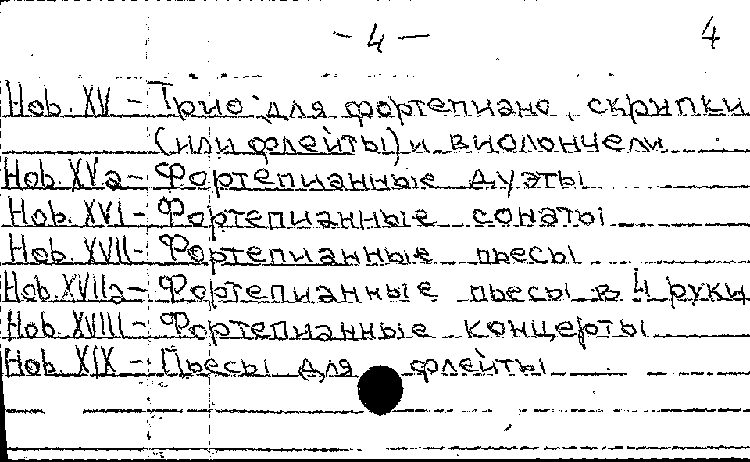 - 4 - 4
Hob. XV - Трио для фортепиано, скрипки
(или флейты) и виолончели
Hob. XVa - Фортепианные дуэты
Hob. XVI - Фортепианные сонаты
Hob. XVII - Фортепианные пьесы
Hob. XVIIa - Фортепианные пьесы в 4 руки
Hob. XVIII - Фортепианные концерты
Hob. XIX - Пьесы для флейты